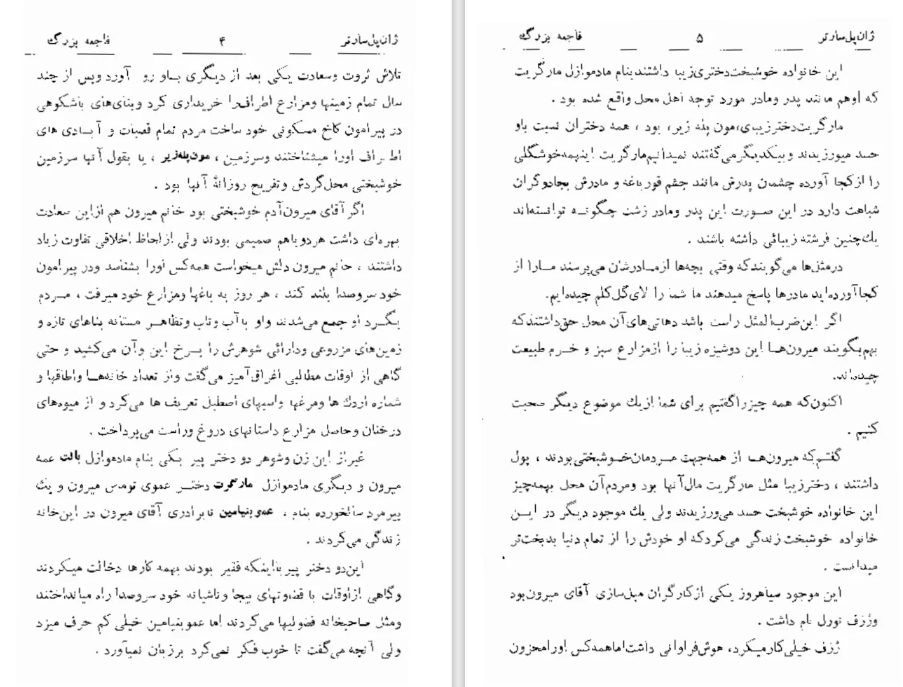 ژان‌پل‌سارتر ۴ فاجعه بزرگ
تلاش ثروت وسعادت یکی بعد از دیگری بـاو رو آورد وپس از چند
سال تمام زمینها ومزارع اطراف‌را خریداری کرد وبنای‌های باشکوهی
در پیرامون کاخ مسکونی خود ساخت مردم تمام قصبات و آبـادی های
اطـراف اورا میشناختند وسرزمین ، مون‌پله‌زیر ، یا بقول آنها سرزمین
خوشبختی محل‌گردش وتفریح روزانهٔ آنها بود .
اگر آقای میرون‌آدم خوشبختی بود خانم میرون هم ازاین سعادت
بهره‌ای داشت هردوباهم صمیمی بودند ولی ازلحاظ اخلاقی تفاوت زیاد
داشتند ، خانم میرون دلش میخواست همه‌کس اورا بشناسد ودر پیرامون
خود سروصدا بلند کند ، هر روز به باغها ومزارع خود میرفت ، مـردم
بگـرد او جمع می‌شدند واو باآب وتاب وتظاهـر مستانه بناهای تازه و
زمین‌های مزروعی ودارائی شوهرش را بـرخ این وآن می‌کشید و حتی
گاهی از اوقات مطالبی اغراق‌آمیز می‌گفت واز تعداد خانه‌هـا واطاقها و
شماره اردك ها ومرغها واسبهای اصطبل تعریف ها می‌کرد و از میوه‌های
درختان وحاصل مزارع داستانهای دروغ وراست می‌پرداخت .
غیراز این زن وشوهر دو دختر پیر یکی بنام مادموازل بالت عمه
میرون و دیگری مادموازل مارگرت دختـر عموی توماس میرون و یك
پیرمرد سالخورده بنام ، عمو بنیامین نابرادری آقای میرون در این‌خانه
زندگی می‌کردند .
این‌دو دختر پیر بااینکه فقیر بودند بهمه کارها دخالت میکردند
وگاهی ازاوقات با قضوتهای بیجا وناشیانه خود سروصدا راه میانداختند
ومثل صاحبخانه فضولیها می‌کردند اما عموبنیامین خیلی کم حرف میزد
ولی آنچه می‌گفت تا خوب فکر نمی‌کرد برزبان نمیآورد .
ژان‌پل‌سارتر ۵ فاجعه بزرگ
این خانواده خوشبخت‌دختری‌زیبا داشتندبنام مادموازل مارگریت
که اوهم مانند پدر ومادر مورد توجه اهل محل واقع شده بود .
مارگریت‌دختر‌زیبای،مون پله زیر، بود ، همه دختران نسبت باو
حسد میورزیدند وبیکدیگر‌می‌گفتند نمیدانیم‌مارگریت اینهمه‌خوشگلی
را ازکجا آورده چشمان پدرش مانند چشم قورباغه و مادرش بجادوگران
شباهت دارد در این صـورت این پدر ومادر زشت چگونـه توانسته‌اند
یك‌چنین فرشته زیبائی داشته باشند .
درمثل‌ها می‌گویندکه وقتی بچه‌ها ازمـادرشان می‌پرسند مـارا از
کجاآورده‌اید مادرها پاسخ میدهند ما شما را لای‌گل‌کلم چیده‌ایم.
اگر این‌ضرب‌المثل راست باشد دهاتی‌های‌آن محل حق‌داشتندکه
بهم‌بگویند میرون‌هـا این دوشیزه زیبـا را ازمزارع سبز و خـرم طبیعت
چیده‌اند.
اکنون‌که همه چیز‌راگفتیم برای شما ازیك موضوع دیگر صحبت
کنیم .
گفتـم‌که میرون‌هـا از همه‌جهت مـردمان‌خـوشبختی‌بودند ، پول
داشتند ، دخترزیبا مثل مارگریت مال‌آنها بود ومردم‌آن محل بهمه‌چیز
این خانواده خوشبخت حسد می‌ورزیدند ولی یك موجود دیگر در ایـن
خانواده خوشبخت زندگی می‌کردکه او خودش را از تمام دنیا بدبخت‌تر
میدانست .
این موجود سیاهروز یکی ازکارگران مبل‌سازی آقای میرون‌بود
وژزف نورل نام داشت .
ژزف خیلی‌کارمیکرد، هوش‌فراوانی داشت‌اما‌همه‌کس اورامحزون